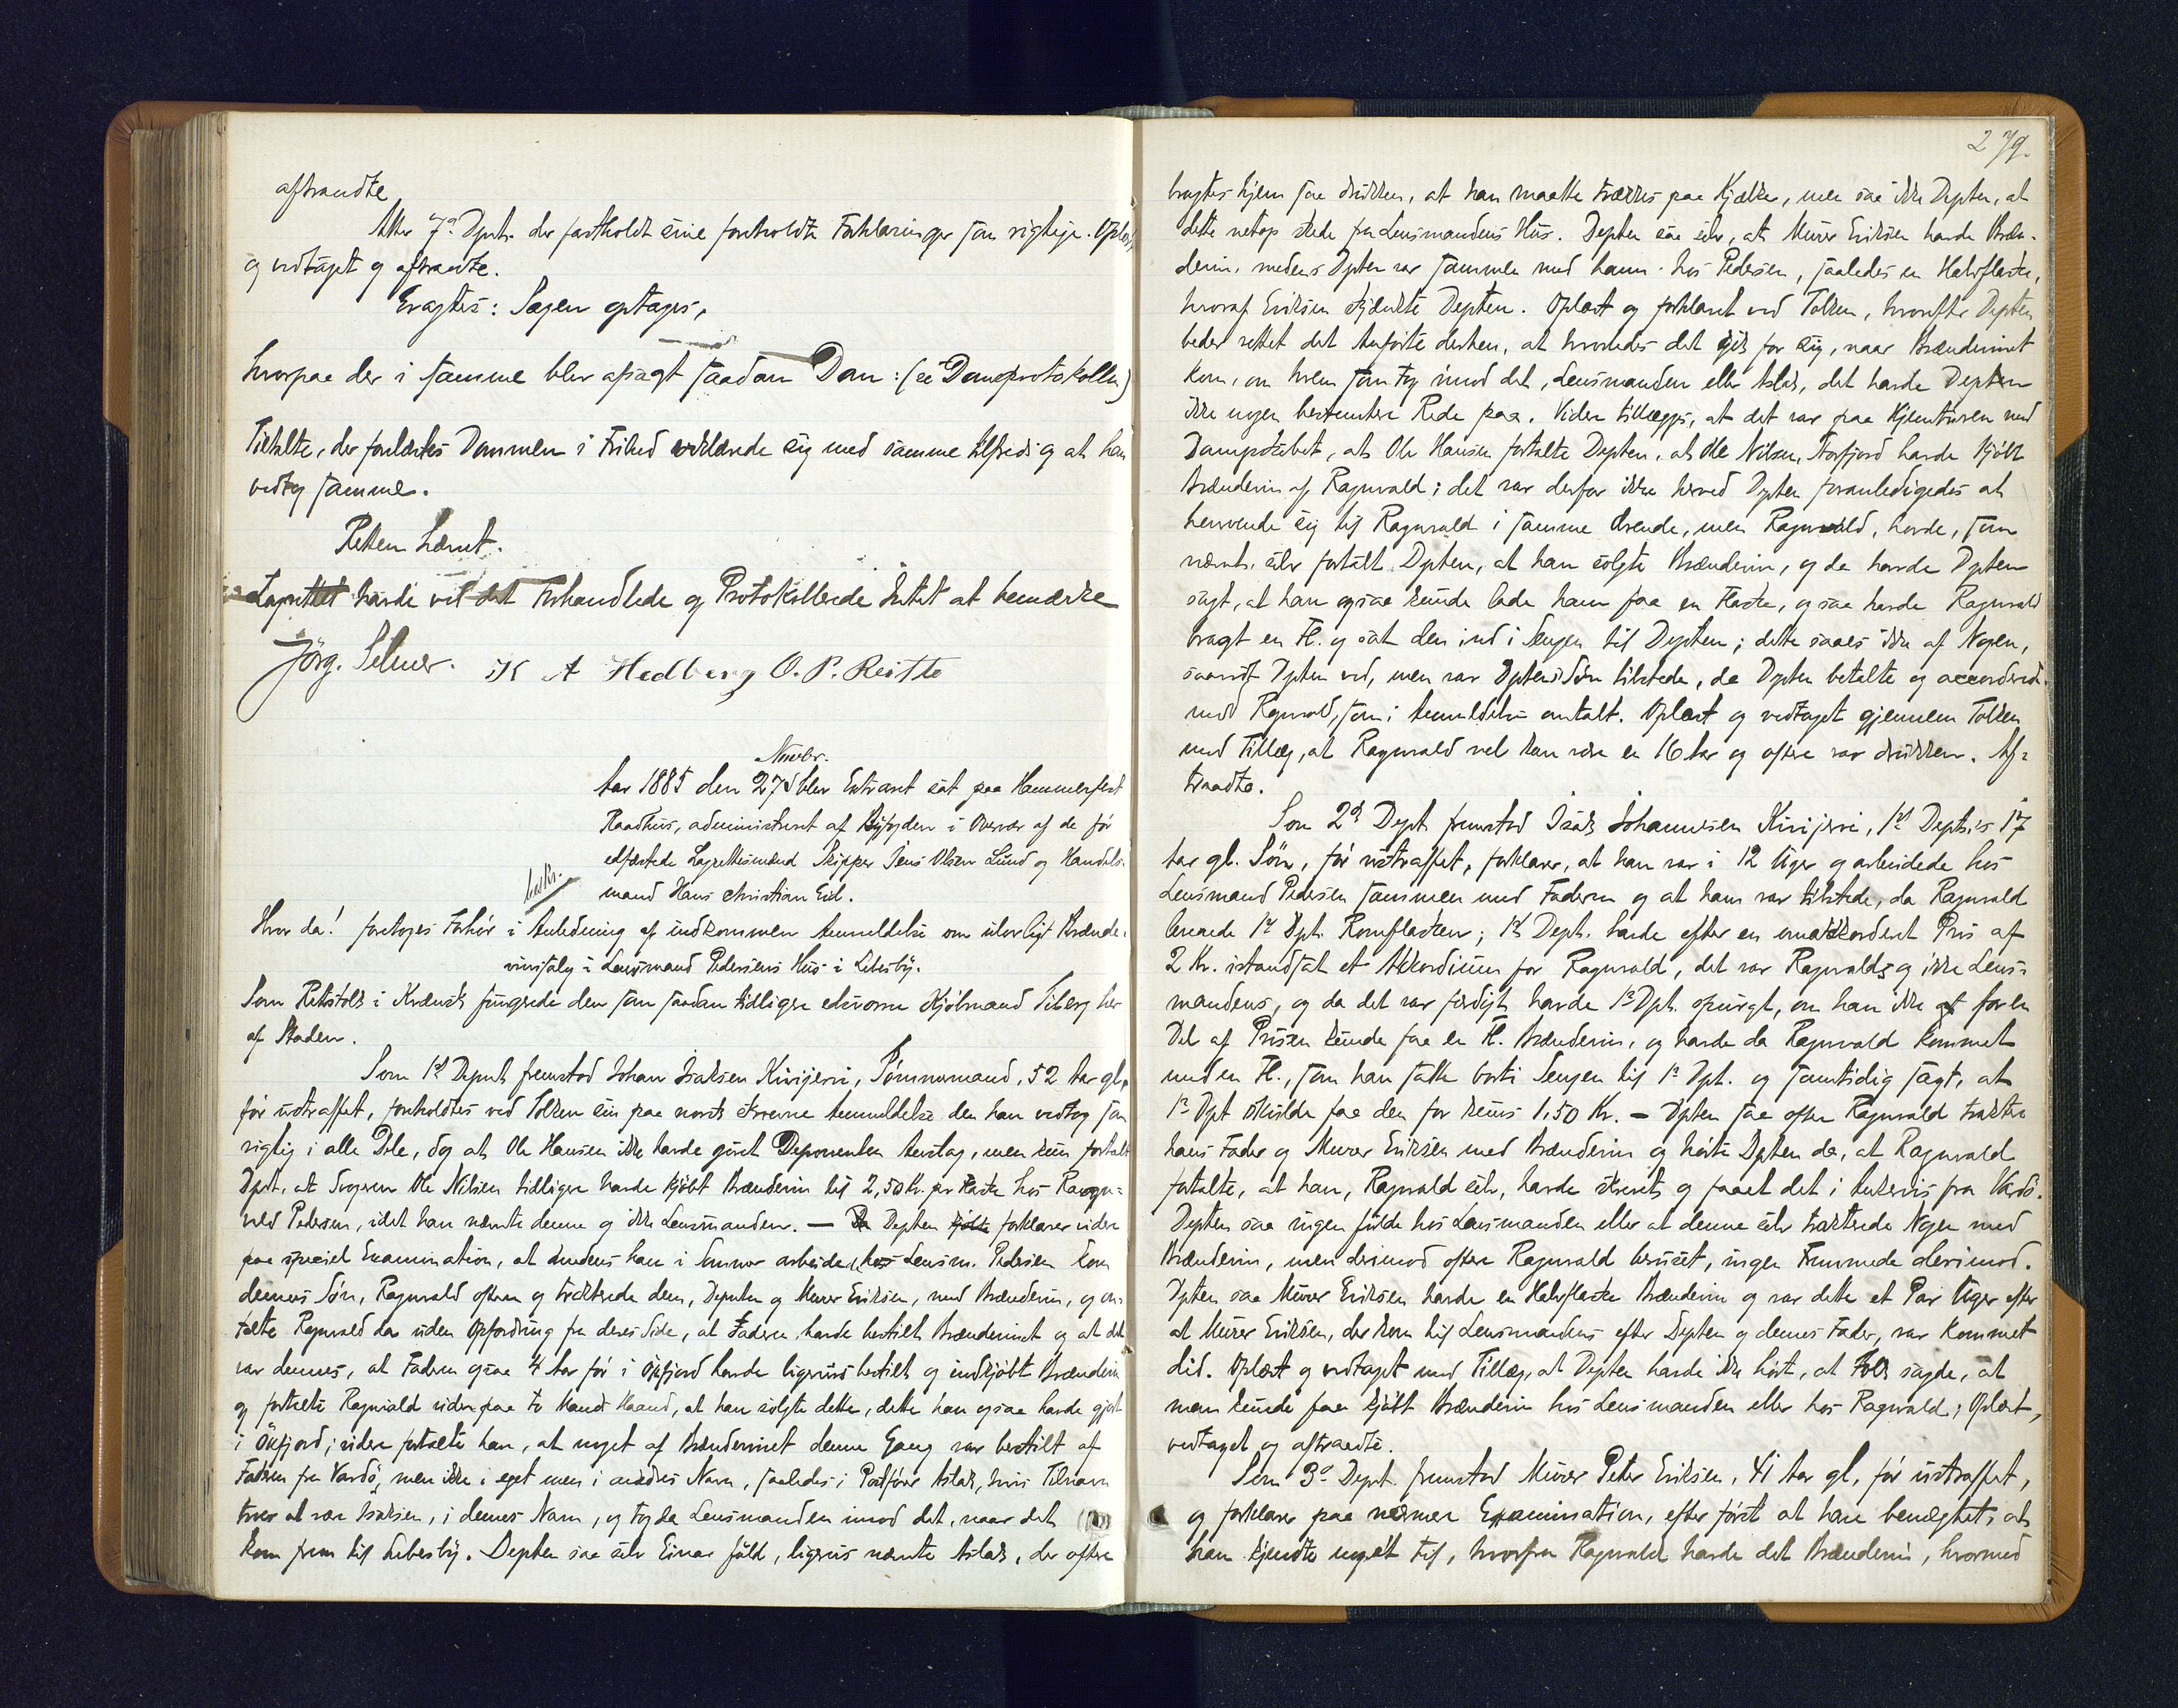 aftraadte
Atter 7de Dpnt. der fastholdt sine foreholdte Forklaringer som rigtige. Oplæst
og vedtaget og aftraadte.
Eragtes: Sagen optages,
hvorpaa der i samme blev afsagt saadan Dom: (se Domsprotokollen)
Tiltalte, der forelæstes Dommen i Frihed erklærede sig med samme tilfreds og at han
vedtog samme.
Retten hævet.
Lagrettet havde ved det Forhandlede og Protokollerede Intet at bemærke
Jörg. Selmer. K A Hedberg O. P. Reitte
Novbr.
Aar 1885 den 27d blev Extraret sat paa Hammerfest
Raadhus, administreret af Byfogden i Overvær af de før
edfæstede Lagrettesmænd Skipper Jens Olsen Lund og Handels-
beskr.
mand Hans Christian Eid.
Hvor da! foretoges Forhør i Anledning af indkommen Anmeldelse om ulovligt Brænde-
vinssalg i Lensmand Pedersens Hus i Lebesby.
Som Retstolk i Kvænsk fungerede den som saadan tidligere edsvorne Kjøbmand Siberg her
af Staden.
Som 1st Deponent fremstod Johan Isaksen Kivijervi, Tømmermand, 52 Aar gl.,
før ustraffet, foreholdtes ved Tolken sin paa norsk skrevne Anmeldelse den han vedtog som
rigtig i alle Dele, dog at Ole Hansen ikke havde givet Deponenten Anslag, men kun fortalt
Dpnt. at Svogeren Ole Nilsen tidligere havde kjøbt Brændevin til 2,50 Kr. pr Flaske hos Ragn-
vald Pedersen, idet han nævnte denne og ikke Lensmanden. — Da Depten kjøbte forklarer videre
paa speciel Examination, at medens han i Sommer arbeidede hos Lensm. Pedersen kom
dennes Søn, Ragnvald oftere og trakterede dem, Depnten og Murer Eriksen, med Brændevin, og om-
talte Ragnvald da uden Opfordring fra deres Side, at Faderen havde bestilt Brændevinet og at det
var dennes, at Faderen ogsaa 4 Aar før i Öxfjord havde ligesaa bestilt og indkjøbt Brændevin
og fortalte Ragnvald videre paa to Mands Haand, at han solgte dette, dette han ogsaa havde gjort
i Öxfjord; videre fortalte han, at noget af Brændevinet denne Gang var bestilt af
Faderen fra Vardö, men ikke i eget men i andres Navn, saaledes i Postfører Aslak, hvis Tilnavn
troes at være Isaksen, i dennes Navn, og tog da Lensmanden imod det, naar det
kom frem til Lebesby. Depten saa selv Einar fuld, ligesaa nævnte Aslak, der oftere
279.
bragtes hjem saa drukken, at han maatte trækkes paa Kjælke, men saa ikke Depten, at
dette netop skede fra Lensmandens Hus. Depten saa selv, at Murer Eriksen havde Bræn-
devin, medens Dpten var sammen med ham hos Pedersen, saaledes en Halvflaske,
hvoraf Eriksen skjænkte Depten. Oplæst og forklaret ved Tolken, hvorefter Depten
beder rettet det Anførte derhen, at hvorledes det gik for sig, naar Brændevinet
kom, om hvem som tog imod det, Lensmanden eller Aslak, det havde Depten
ikke nogen bestemtere Rede paa. Videre tillægges, at det var paa Hjemturen med
Dampskibet, at Ole Hansen fortalte Depten, at Ole Nilsen, Storfjord havde kjøbt
Brændevin af Ragnvald; det var derfor ikke herved Dpten foranledigedes at
henvende sig til Ragnvald i samme Ærende, men Ragnvald, havde, som
nævnt, selv fortalt Dpten, at han solgte Brændevin, og da havde Dpten
sagt, at han ogsaa kunde lade ham faa en Flaske, og saa havde Ragnvald
bragt en Fl. og sat den ind i Sengen til Depten; dette saaes ikke af Nogen,
saavidt Dpten ved, men var Dptens Søn tilstede, da Dpten betalte og accorderede
med Ragnvald, som i Anmeldelsen omtalt. Oplæst og vedtaget gjennem Tolken
med Tillæg, at Ragnvald vel kan være en 16 Aar og oftere var drukken. Af-
traadte.
Som 2d Dept. fremstod Isak Johannesen Kivijervi, 1st Dept.s 17
Aar gl. Søn, før ustraffet, forklarer, at han var i 12 Uger og arbeidede hos
Lensmand Pedersen sammen med Faderen og at han var tilstede, da Ragnvald
leverede 1st Dpt. Romflasken; 1st Dept. havde efter en omakkorderet Pris af
2 Kr. istandsat et Akkordium for Ragnvald, det var Ragnvalds og ikke Lens-
mandens, og da det var færdigt havde 1st Dpt. spurgt, om han ikke at for en
Del af Prisen kunde faa en Fl. Brændevin, og havde da Ragnvald kommet
med en Fl., som han satte borti Sengen til 1st Dpt. og samtidig sagt, at
1st Dpt skulde faa den for kuns 1,50 Kr. — Dpten saa ofte Ragnvald traktere
hans Fader og Murer Eriksen med Brændevin og hørte Dpten da, at Ragnvald
fortalte, at han, Ragnvald selv, havde skrevet og faaet det i Ankervis fra Vardö.
Depten saa ingen fulde hos Lensmanden eller at denne selv trakterede Nogen med
Brændevin, men derimod oftere Ragnvald beruset, ingen Fremmede derimod.
Dpten saa Murer Eriksen havde en Halvflaske Brændevin og var dette et Par Uger efter
at Murer Eriksen, der kom til Lensmandens efter Depten og dennes Fader, var kommet
did. Oplæst og vedtaget med Tillæg, at Depten havde ikke hørt, at Folk sagde, at
man kunde faa kjøbt Brændevin hos Lensmanden eller hos Ragnvald; Oplæst,
vedtaget og aftraadte.
Som 3d Depnt. fremstod Murer Peter Eriksen, 41 Aar gl., før ustraffet,
og forklarer paa nærmere Examination, efter først at have benægtet, at
han kjendte noget til, hvorfra Ragnvald havde det Brændevin, hvormed